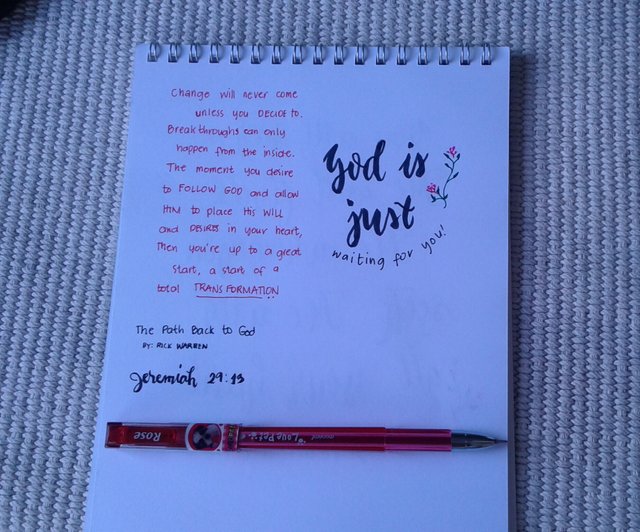 Change will never come
unless you DECIDE to.
Breakthroughs can only
happen from the inside.
The moment you desire
to FOLLOW GOD and allow
HIM to place His WILL
and DESIRES in your heart,
Then you're up to a great
start, a start of a
total TRANSFORMATION
God is
just
waiting for you!
The Path Back to God
BY: RICK WARREN
Jeremiah 29:13
Rose
"Love Pet's